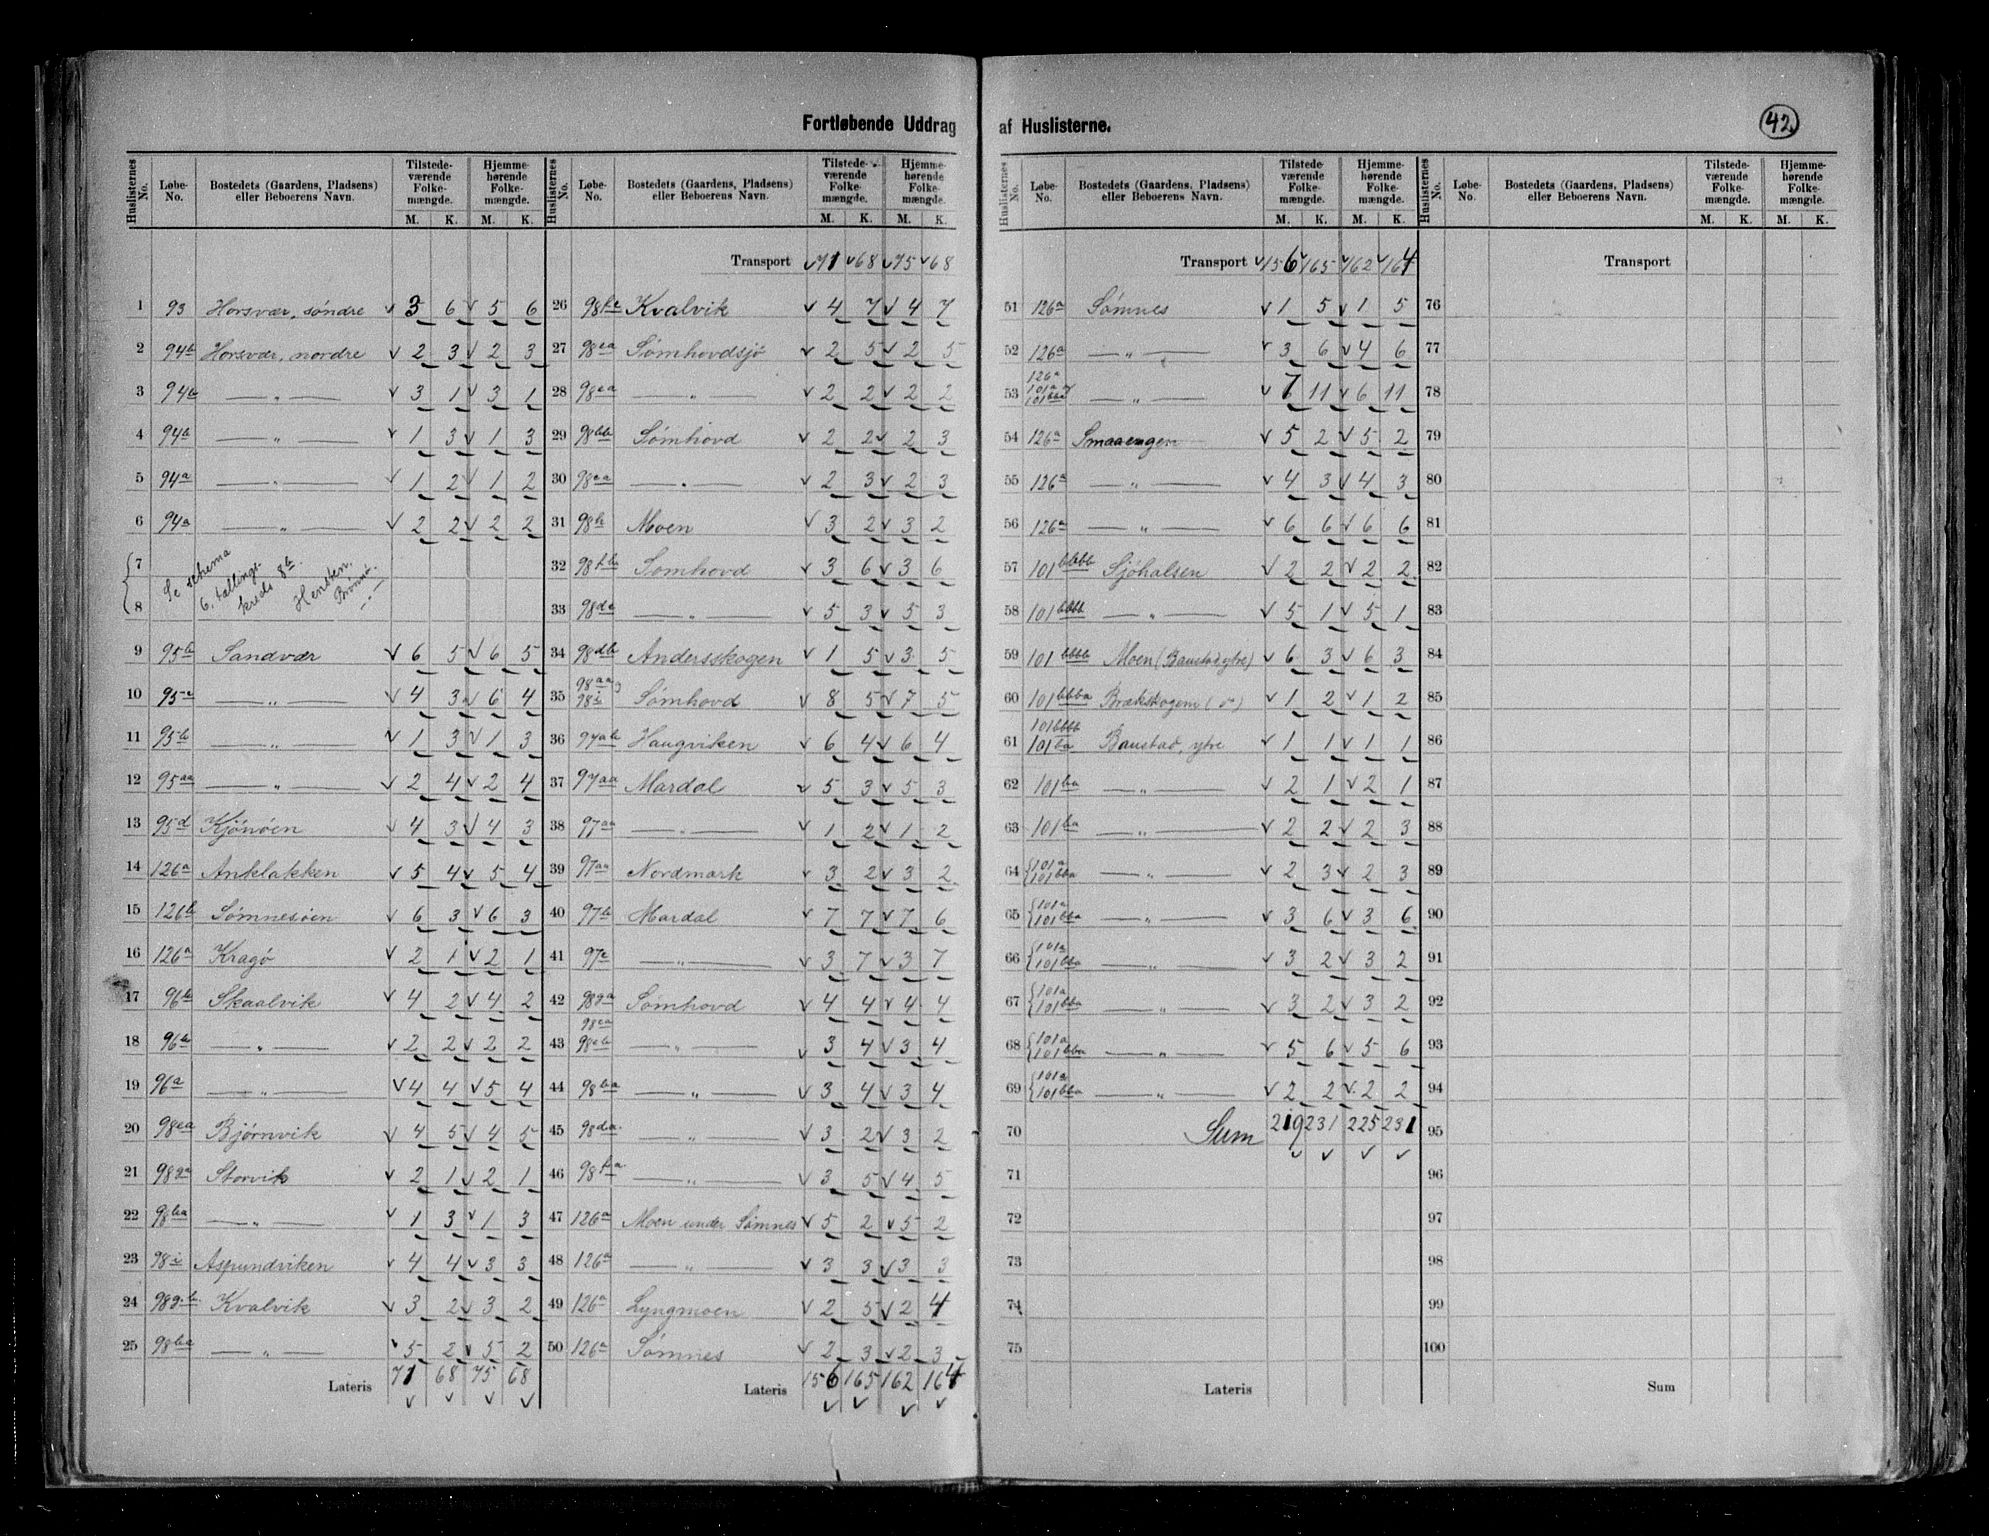 Fortløbende Uddrag af Huslisterne.
42
Huslisternes No. Løbe-No. Bostedets (Gaardens, Pladsens) eller Beboerens Navn. Tilstedeværende Folkemængde. M. K. Hjemmehørende Folkemængde. M. K.
1 93 Horsvær, søndre 3 6 5 6
2 94b Horsvær, nordre 2 3 2 3
3 94b — „ — 3 1 3 1
4 94b — „ — 1 3 1 3
5 94a — „ — 1 2 1 2
6 94a — „ — 2 2 2 2
7 Se schema
8 6. tællingskreds 8b. Hensten, Brønnø.
9 95b Sandvær 6 5 6 5
10 95c — „ — 4 3 6 4
11 95b — „ — 1 3 1 3
12 95aa — „ — 2 4 2 4
13 95d Kjönöen 4 3 4 3
14 126a Anklakken 5 4 5 4
15 126b Sømnesøen 6 3 6 3
16 126a Kragø 2 1 2 1
17 96b Skaalvik 4 2 4 2
18 96b — „ — 2 2 2 2
19 96a — „ — 4 4 5 4
20 98ea Bjørnvik 4 5 4 5
21 98ga Storvik 2 1 2 1
22 98ba — „ — 1 3 1 3
23 98i Aspundviken 4 4 3 3
24 98g.b. Kvalvik 3 2 3 2
25 98ba — „ — 5 2 5 2
Lateris 71 68 75 68
Huslisternes No. Løbe-No. Bostedets (Gaardens, Pladsens) eller Beboerens Navn. Tilstedeværende Folkemængde. M. K. Hjemmehørende Folkemængde. M. K.
Transport 71 68 75 68
26 Kvalvik 4 7 4 7
27 98ea Sømhovdsjø 2 5 2 5
28 98ea — „ — 2 2 2 2
29 98bb Sømhovd 2 2 2 3
30 98ea — „ — 2 3 2 3
31 98h Moen 3 2 3 2
32 98fb Sømhovd 3 6 3 6
33 98dc — „ — 5 3 5 3
34 98db Andersskogen 1 5 3 5
35 98aa 98i Sømhovd 8 5 7 5
36 97ab Haugviken 6 4 6 4
37 97aa Mardal 5 3 5 3
38 97aa — „ — 1 2 1 2
39 97aa Nordmark 3 2 3 2
40 97b Mardal 7 7 7 6
41 97c — „ — 3 7 3 7
42 98ga Sømhovd 4 4 4 4
43 98ea 98eb — „ — 3 4 3 4
44 98ba — „ — 3 4 3 4
45 98da — „ — 3 2 3 2
46 98fa — „ — 3 5 4 5
47 126a Moen under Sømnes 5 2 5 2
48 126a — „ — 3 3 3 3
49 126a Lyngmoen 2 5 2 4
50 126a Sømnes 2 3 2 3
Lateris 156 165 162 164
Huslisternes No. Løbe-No. Bostedets (Gaardens, Pladsens) eller Beboerens Navn. Tilstedeværende Folkemængde. M. K. Hjemmehørende Folkemængde. M. K.
Transport 156 165 162 164
51 126a Sømnes 1 5 1 5
52 126a — „ — 3 6 4 6
53 126a 101a og 101bba — „ — 7 11 6 11
54 126a Smaaengen 5 2 5 2
55 126a — „ — 4 3 4 3
56 126a — „ — 6 6 6 6
57 101bbbb Sjöhalsen 2 2 2 2
58 101bbbb — „ — 5 1 5 1
59 101bbbb Moen (Baustad, ytre) 6 3 6 3
60 101bbba Brækskogem (do) 1 2 1 2
61 101bbbb 101ba Baustad, ytre 1 1 1 1
62 101ba — „ — 2 1 2 1
63 101ba — „ — 2 2 2 3
64 101a 101bba — „ — 2 3 2 3
65 101a 101bba — „ — 3 6 3 6
66 101a 101bba — „ — 3 2 3 2
67 101a 101bba — „ — 3 2 3 2
68 101a 101bba — „ — 5 6 5 6
69 101a 101bba — „ — 2 2 2 2
70 Sum 219 231 225 231
71
72
73
74
75
Lateris
Huslisternes No. Løbe-No. Bostedets (Gaardens, Pladsens) eller Beboerens Navn. Tilstedeværende Folkemængde. M. K. Hjemmehørende Folkemængde. M. K.
Transport
76
77
78
79
80
81
82
83
84
85
86
87
88
89
90
91
92
93
94
95
96
97
98
99
100
Sum